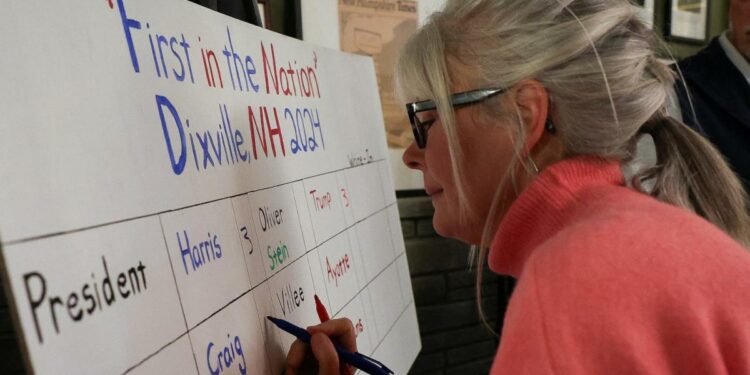 New Hampshire Times
"First in the Nation"
Dixville, NH 2024
Write-In
President
Harris
3
Oliver
Stein
Trump
3
Craig
Villee
Ayotte